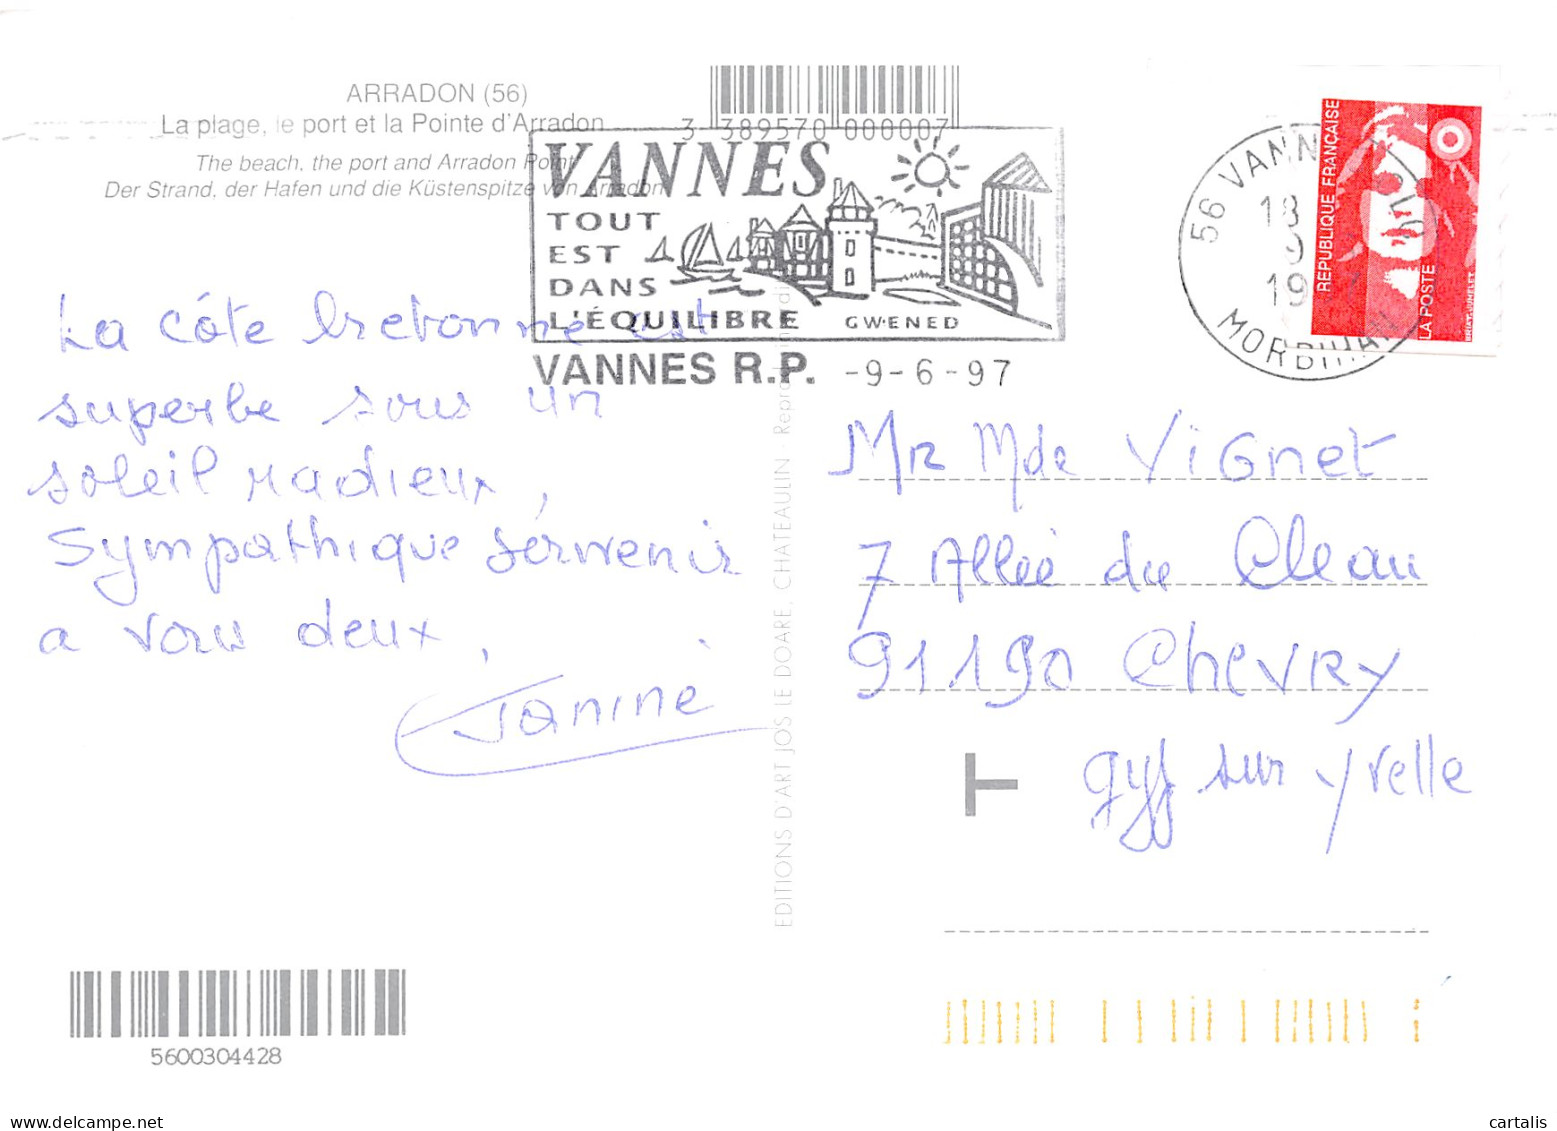 ARRADON (56)
La plage, le port et la Pointe d'Arradon
The beach, the port and Arradon Point
Der Strand, der Hafen und die Küstenspitze von Arradon
3 389570 000007
VANNES
TOUT
EST
DANS
L'ÉQUILIBRE
GWENED
VANNES R.P. -9-6-97
56 VANN
18
9
19
MORBIHAN
REPUBLIQUE FRANÇAISE
LA POSTE
La côte bretonne est
superbe sous un
soleil radieux,
Sympathique sérvenir
a vous deux,
Janine
EDITIONS D'ART JOS LE DOARE, CHATEAULIN
Mr Mde Vignet
7 Allée du Cleau
91190 Chevry
gyf sur yvelle
T
5600304428
cartalis